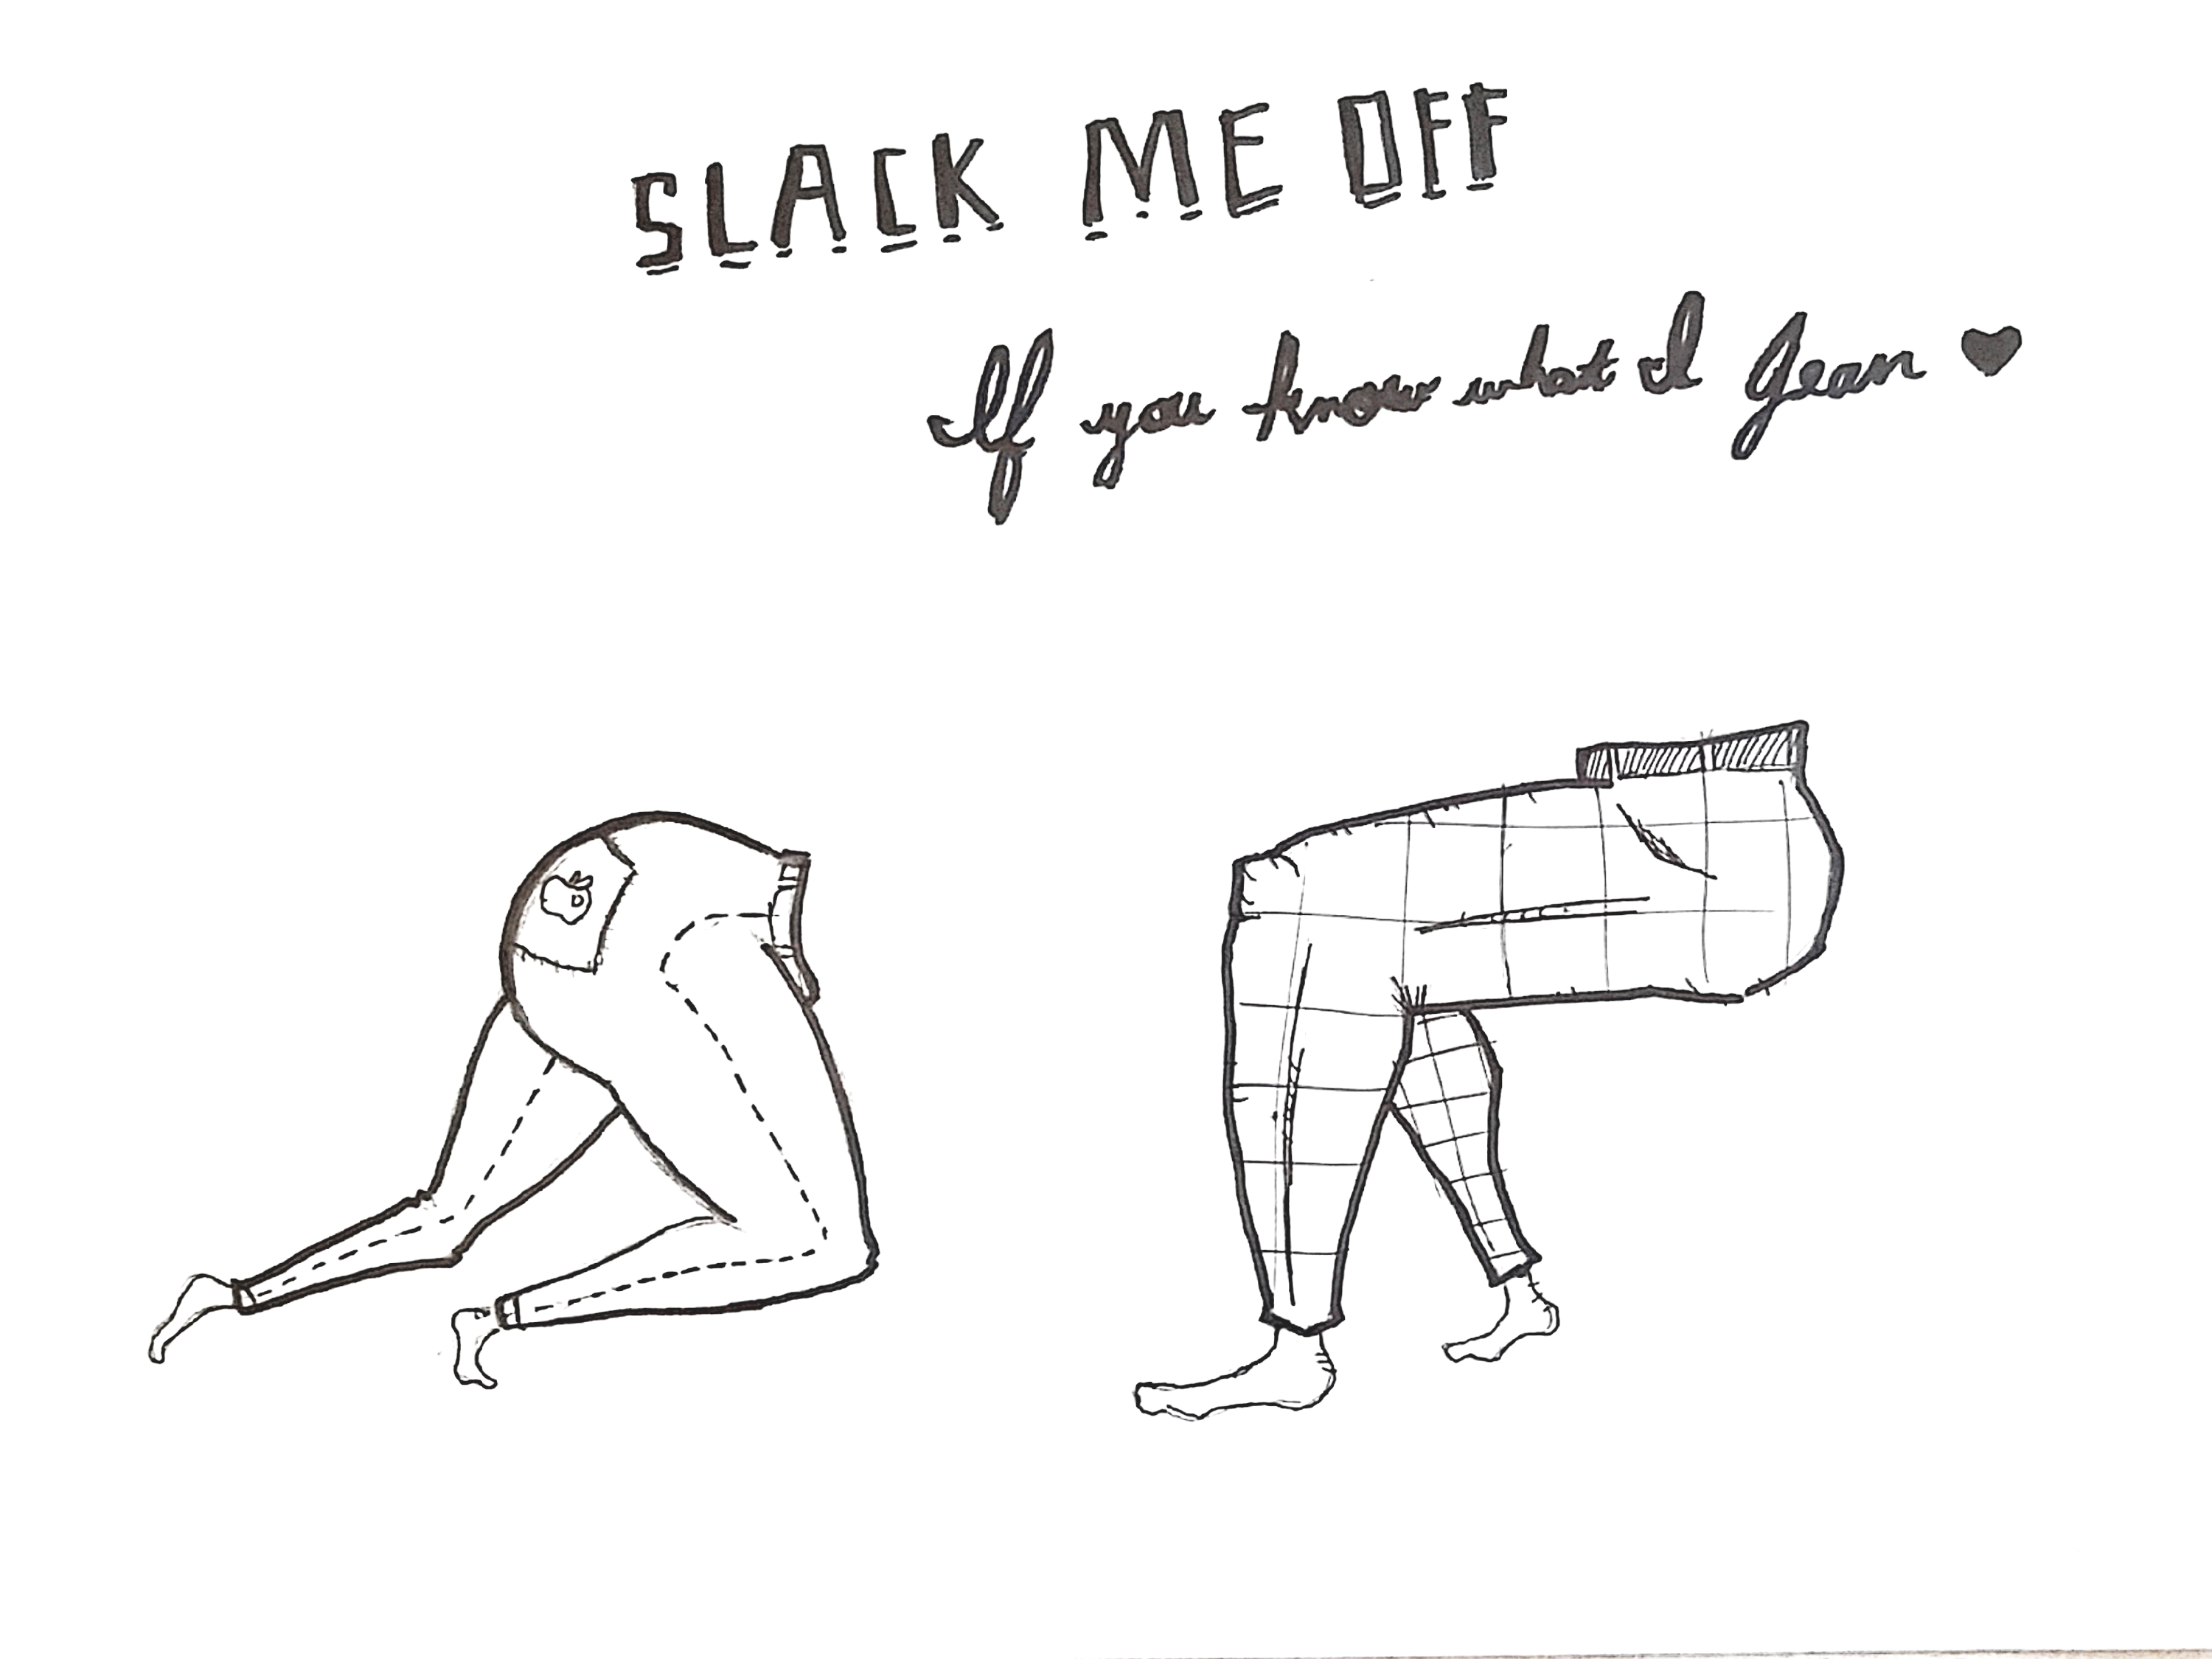 SLACK ME OFF
If you know what I Jean ♥
D